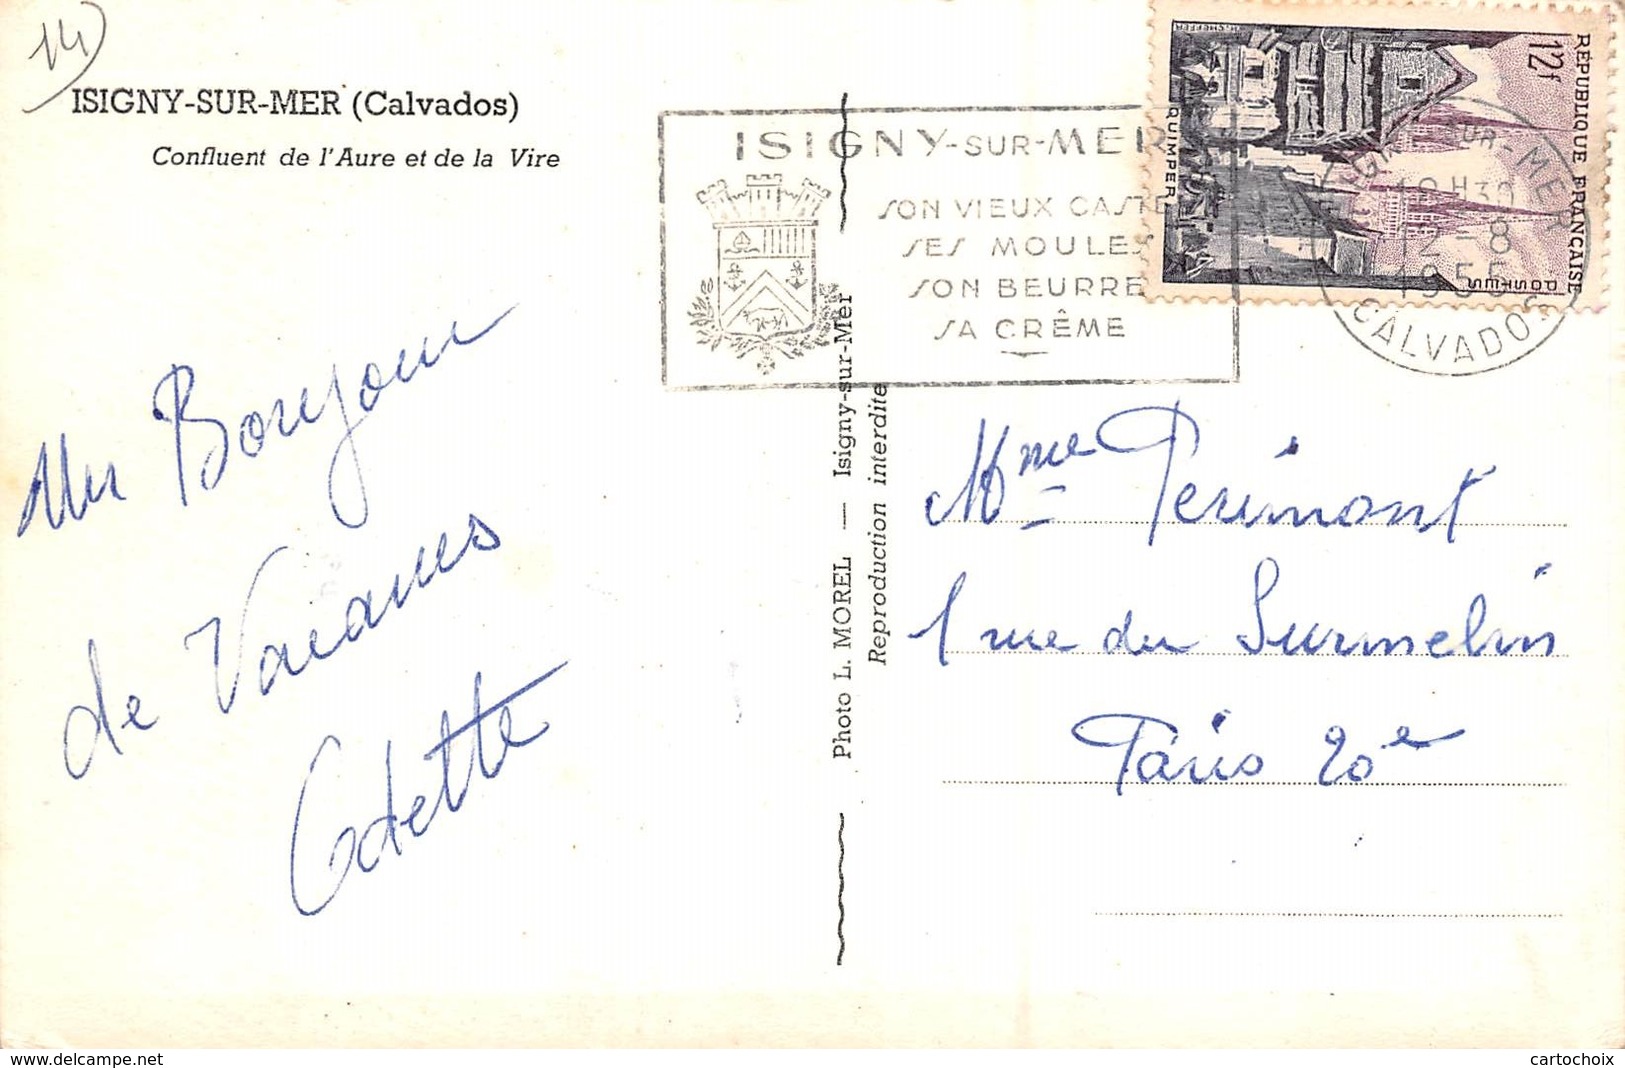 14
ISIGNY-SUR-MER (Calvados)
Confluent de l'Aure et de la Vire
Un Bonjour
de Vacances
Odette
Photo L. MOREL — Isigny-sur-Mer
Reproduction interdite
ISIGNY-SUR-MER
SON VIEUX CASTE
SES MOULES
SON BEURRE
SA CRÊME
RÉPUBLIQUE FRANÇAISE
12f
POSTES
QUIMPER
SUR-MER
12-8
1955
CALVADOS
Mme Perimont
1 rue du Surmelin
Paris 20e
www.delcampe.net
cartochoix